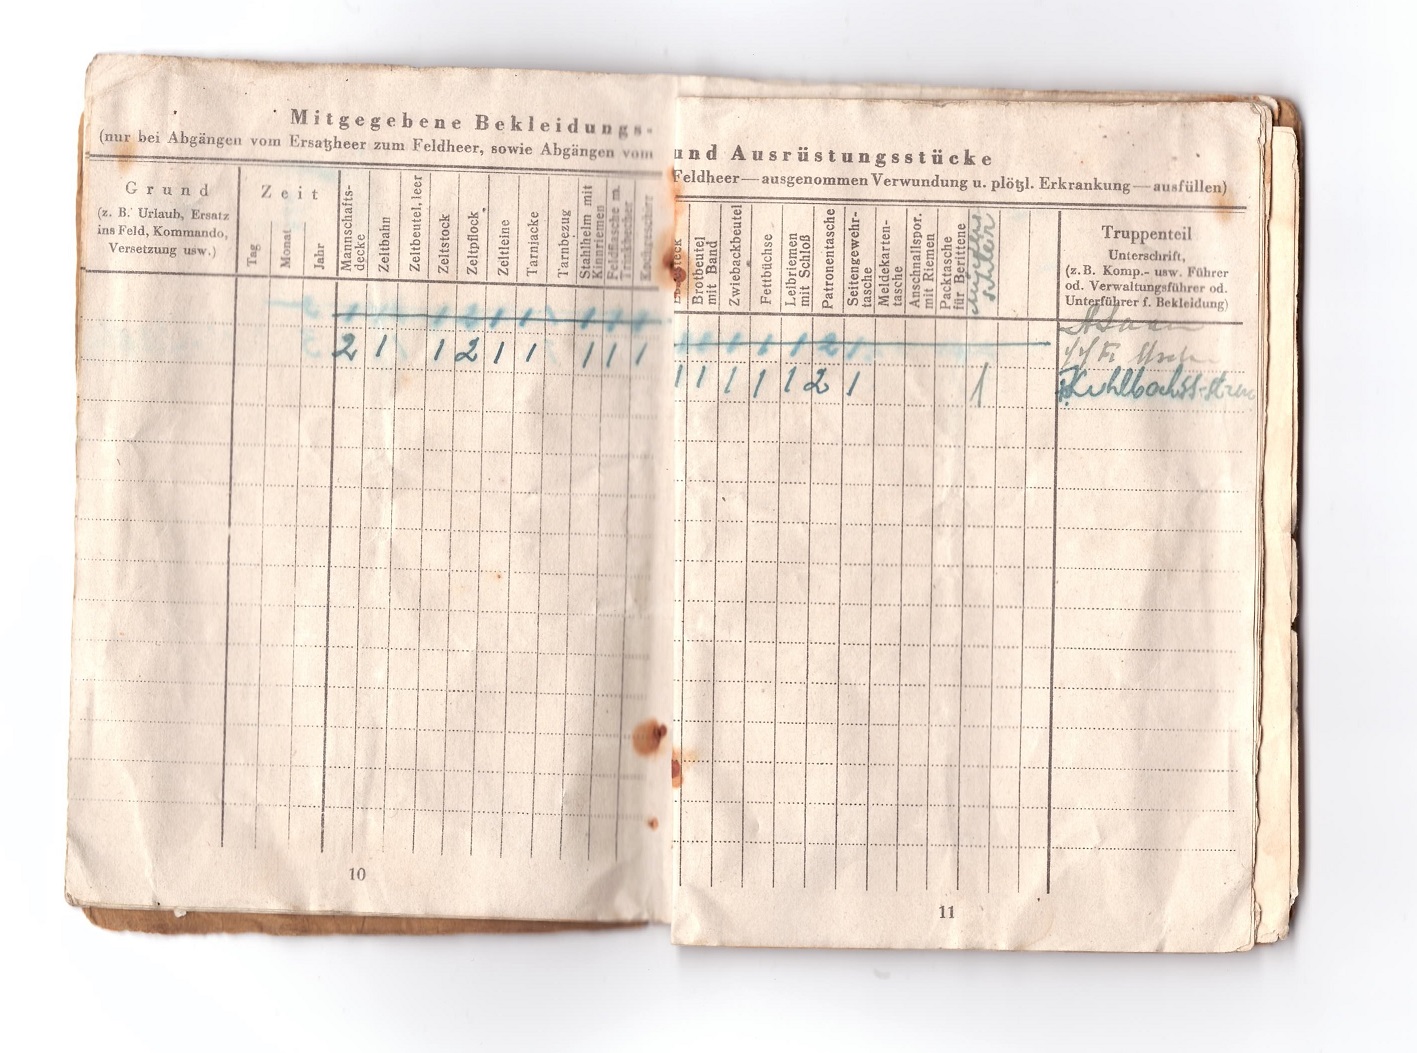 Mitgegebene Bekleidungs-
(nur bei Abgängen vom Ersatzheer zum Feldheer, sowie Abgängen vom
Grund
(z. B. Urlaub, Ersatz
ins Feld, Kommando,
Versetzung usw.)
Zeit
Tag
Monat
Jahr
Mannschafts-
decke
Zeltbahn
Zeltbeutel, leer
Zeltstock
Zeltpflock
Zeltleine
Tarnjacke
Tarnbezug
Stahlhelm mit
Kinnriemen
Feldflasche m.
Trinkbecher
Kochgeschirr
2 1 1 2 1 1 1 1 1
10
und Ausrüstungsstücke
Feldheer — ausgenommen Verwundung u. plötzl. Erkrankung — ausfüllen)
Brotbeutel
mit Band
Zwiebackbeutel
Fettbüchse
Leibriemen
mit Schloß
Patronentasche
Seitengewehr-
tasche
Meldekarten-
tasche
Anschnallspor.
mit Riemen
Packtasche
für Berittene
Truppenteil
Unterschrift,
(z. B. Komp.- usw. Führer
od. Verwaltungsführer od.
Unterführer f. Bekleidung)
1 1 1 2 1
1 1 1 1 1 2 1 1
11